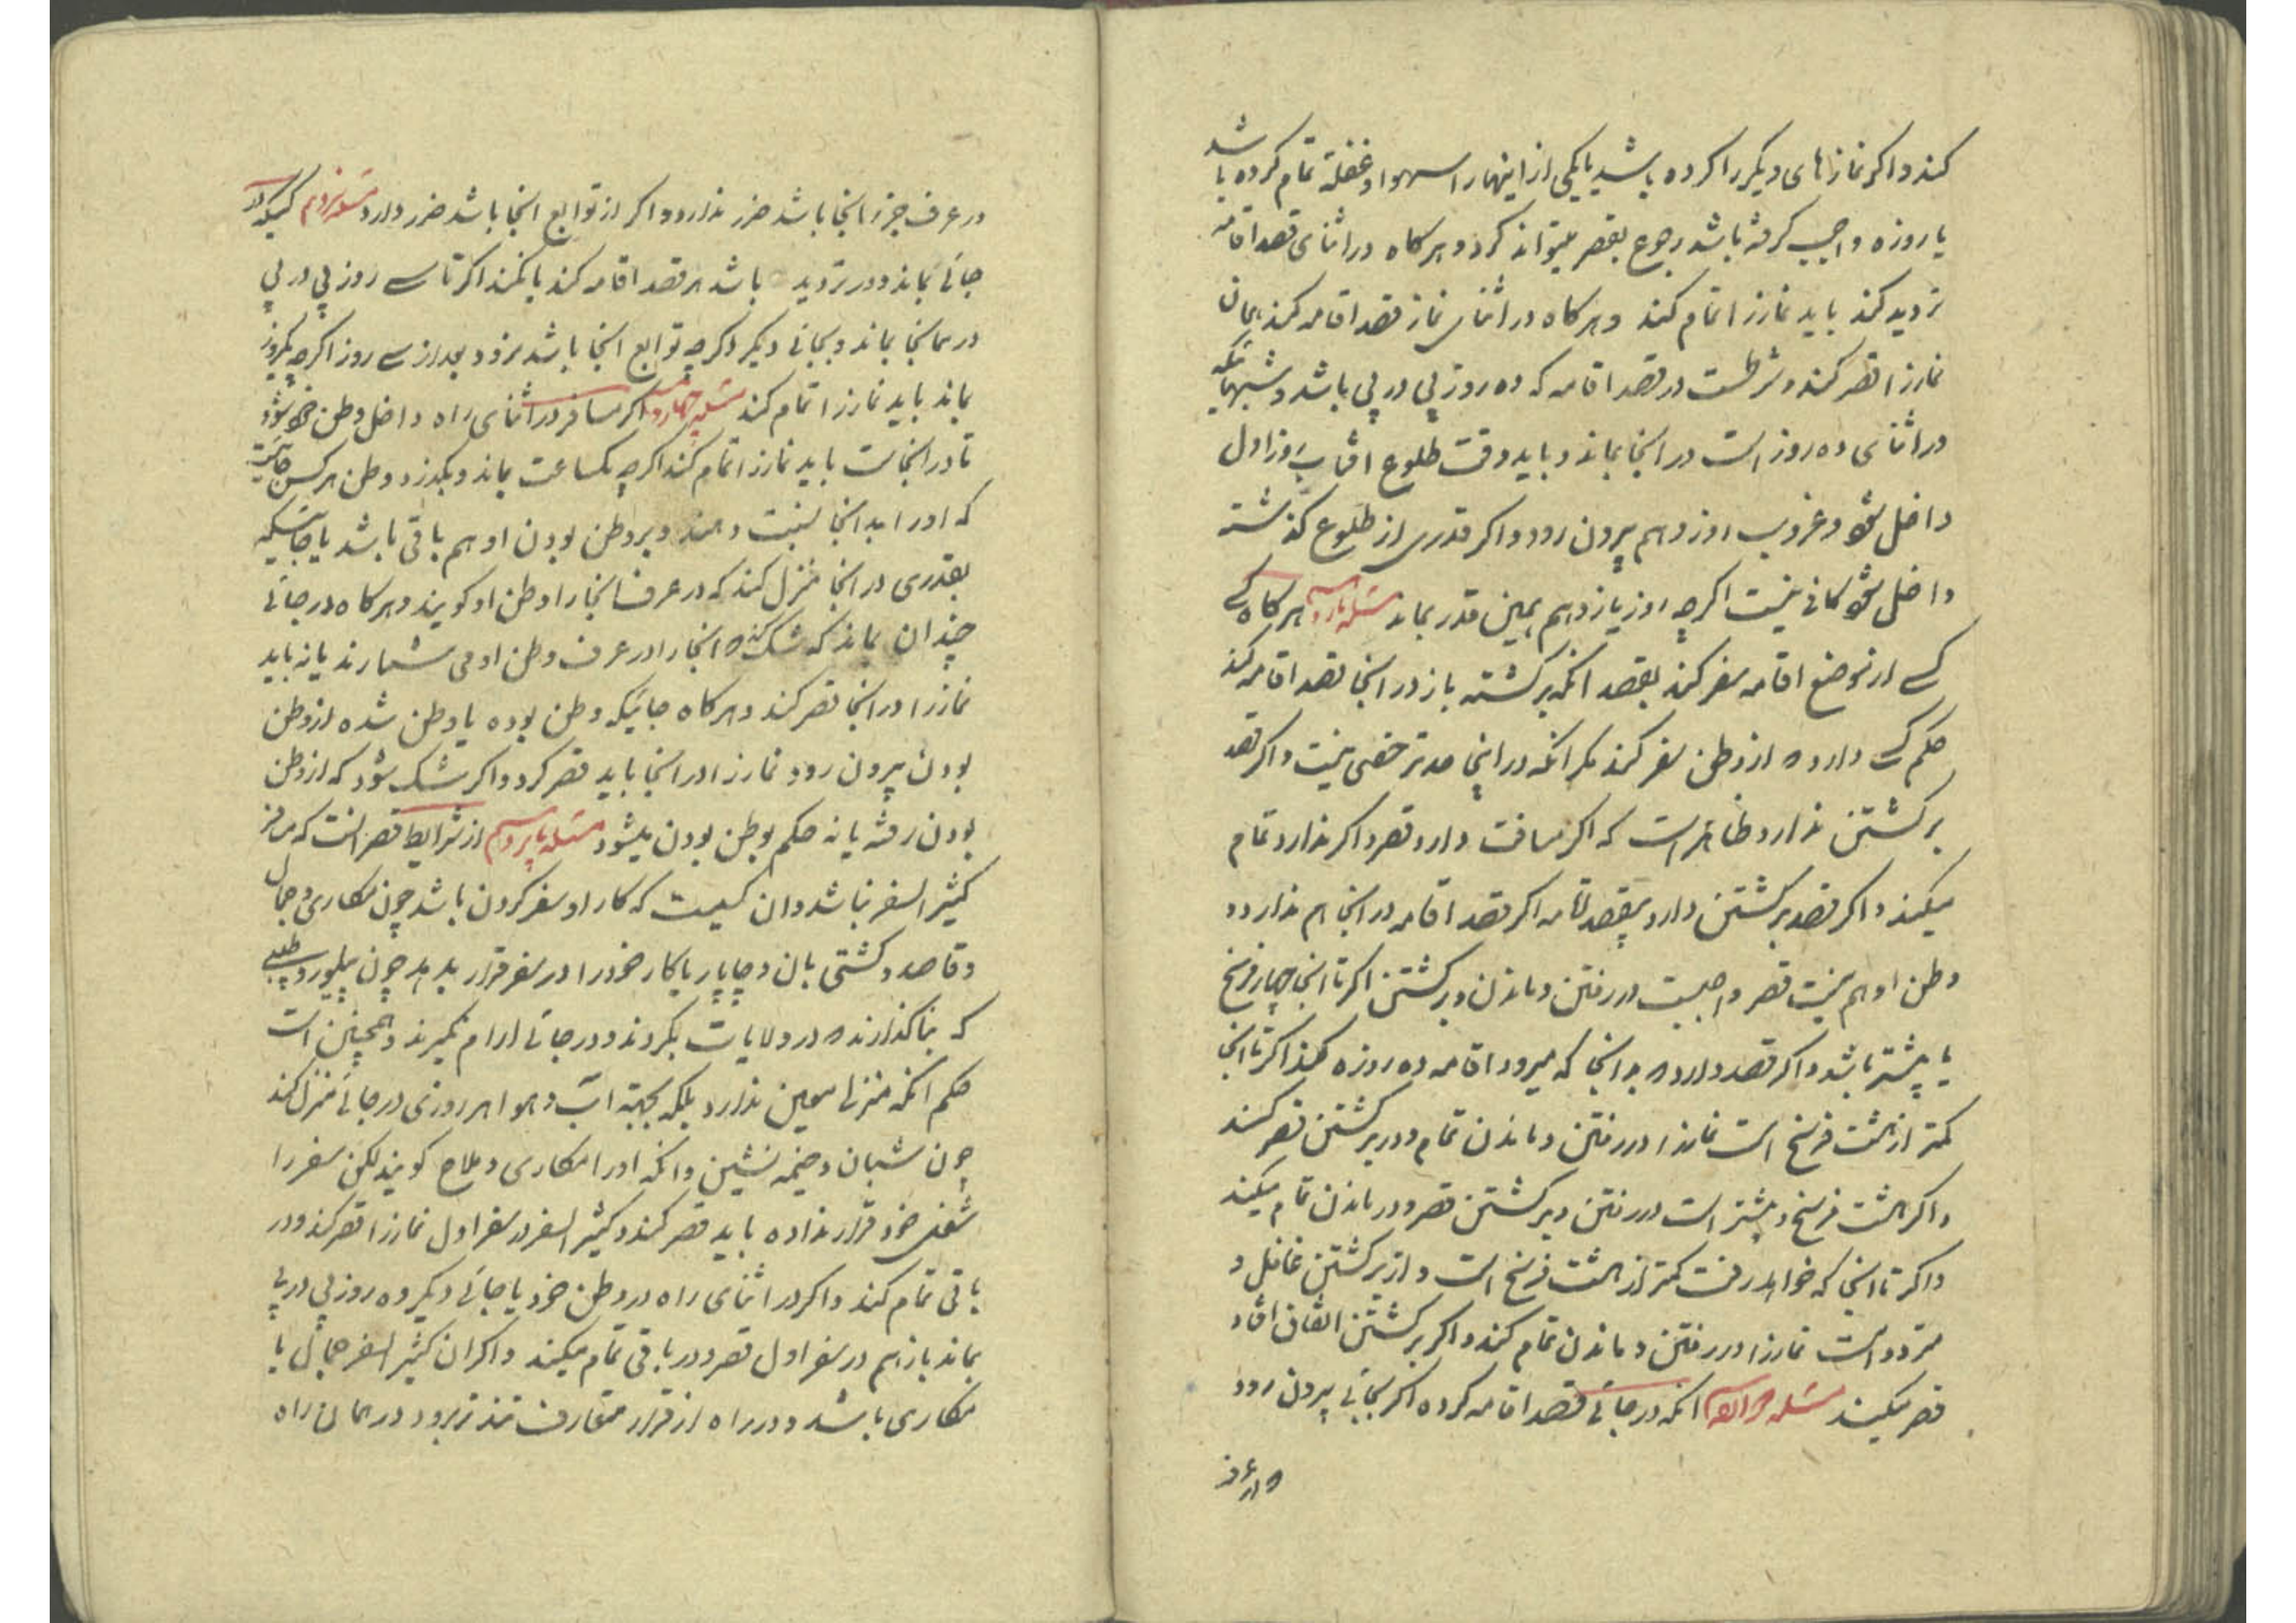 کند و اکر نمازهای دیکر را کرده باشد یا یکی از اینها را سهوا و غفلة تمام کرده باشد
یا روزه واجب کرفته باشد رجوع بقصر میتواند کرد و هرکاه در اثنای قصد اقامه
تردید کند باید نماز را تمام کند و هرکاه در اثنای نماز قصد اقامه کند همان
نماز را قصر کند و شرطست در قصد اقامه که ده روز پی در پی باشد و شبهائیکه
در اثنای ده روز است در انجا بماند و باید وقت طلوع افتاب روز اول
داخل شود و غروب روز دهم بیرون رود و اکر قدری از طلوع کذشته
داخل شود کافی نیست اکرچه روز یازدهم بهمین قدر بماند مسئله هرکاه کسی
کسی از موضع اقامه سفر کند بقصد انکه برکشته باز در انجا قصد اقامه کند
حکم کسی دارد که از وطن سفر کند مکر انکه در اینجا حد ترخص نیست و اکر قصد
برکشتن ندارد ظاهر است که اکر مسافت دارد قصر و اکر ندارد تمام
میکند و اکر قصد برکشتن دارد بیقصد اقامه اکر قصد اقامه در انجا هم ندارد و
وطن او هم نیست قصر واجبست در رفتن و ماندن و برکشتن اکر تا انجا چهار فرسخ
یا بیشتر باشد و اکر قصد دارد که در انجا که میرود اقامه ده روزه کند اکر تا انجا
کمتر از هشت فرسخ است نماز را در رفتن و ماندن تمام و در برکشتن قصر کند
و اکر هشت فرسخ و بیشتر است در رفتن و برکشتن قصر و در ماندن تمام میکند
و اکر تا انجا که خواهد رفت کمتر از هشت فرسخ است و از برکشتن غافل و
متردد است نماز را در رفتن و ماندن تمام کند و اکر برکشتن اتفاق افتاد
قصر میکند مسئله انکه در جائی قصد اقامه کرده اکر بجائی بیرون رود
که در عرف
در عرف جزء انجا باشد ضرر ندارد و اکر از توابع انجا باشد ضرر دارد مسئله کسیکه در
جائی بماند و در تردید باشد که قصد اقامه کند یا نکند اکر تا سی روز پی در پی
در همانجا بماند و بجائی دیکر اکرچه توابع انجا باشد نرود بعد از سی روز اکرچه یکروز
بماند باید نماز را تمام کند مسئله چهاردهم اکر مسافر در اثنای راه داخل وطن خود شود
تا در انجاست باید نماز را تمام کند اکرچه یکساعت بماند و بکذرد و وطن هر کس جائیست
که او را بدانجا نسبت دهند و بر وطن بودن او هم باقی باشد یا جائیکه
بقدری در انجا منزل کند که در عرف انجا را وطن او کویند و هرکاه در جائی
چندان بماند که شک کند که انجا را در عرف وطن او می شمارند یا نه باید
نماز را در انجا قصر کند و هرکاه جائیکه وطن بوده یا وطن شده از وطن
بودن بیرون رود نماز را در انجا باید قصر کرد و اکر شک شود که از وطن
بودن رفته یا نه حکم بوطن بودن میشود مسئله پانزدهم از شرایط قصر انست که مسافر
کثیر السفر نباشد و ان کسیست که کار او سفر کردن باشد چون مکاری و جمال
و قاصد و کشتی بان و چاپار یا کار خود را در سفر قرار بدهد چون پیلور و طبیبی
که بنا کذارند که در ولایات بکردند و در جائی ارام نکیرند و همچنین است
حکم انکه منزل معین ندارد بلکه بجهة آب و هوا هر روزی در جائی منزل کند
چون شبان و خیمه نشین و انکه او را مکاری و ملاح کویند لکن سفر را
شغل خود قرار نداده باید قصر کند و کثیر السفر در سفر اول نماز را قصر کند و در
باقی تمام کند و اکر در اثنای راه در وطن خود یا جائی دیکر ده روز پی در پی
بماند باز هم در سفر اول قصر و در باقی تمام میکند و اکر ان کثیر السفر جمال یا
مکاری باشد و در راه از قرار متعارف تندتر برود در همان راه